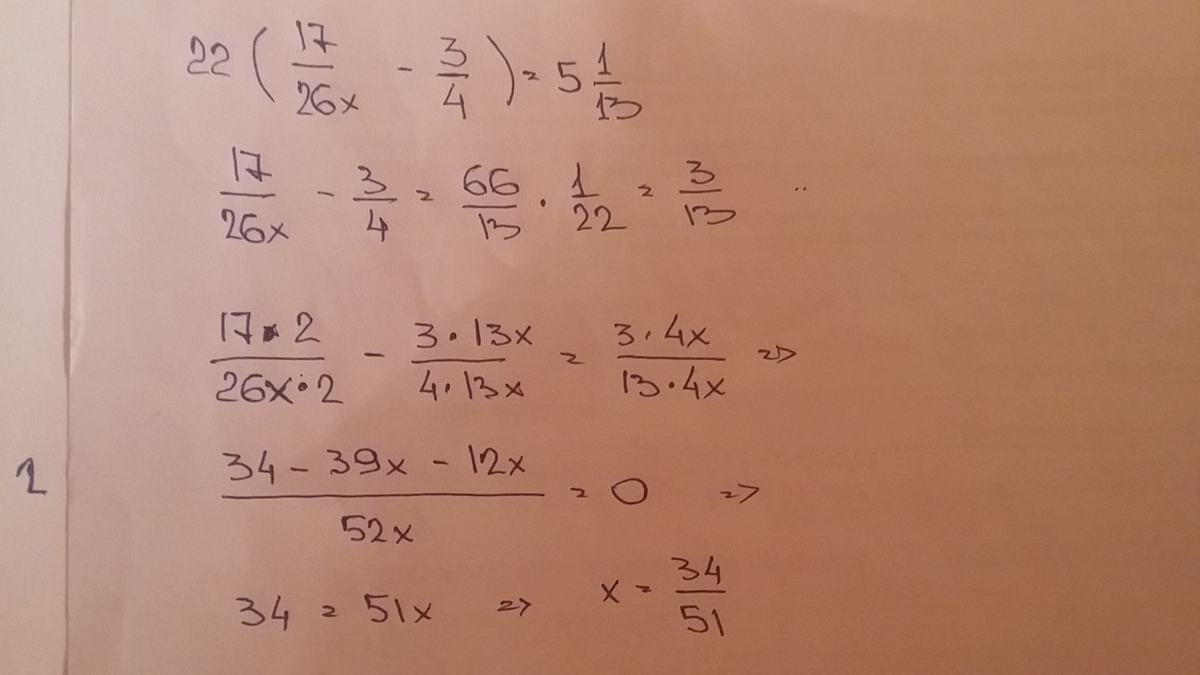 22 ( 17/26x - 3/4 ) = 5 1/13
17/26x - 3/4 = 66/13 · 1/22 = 3/13
17·2/26x·2 - 3·13x/4·13x = 3·4x/13·4x =>
34 - 39x - 12x/52x = 0 =>
1
34 = 51x => x = 34/51